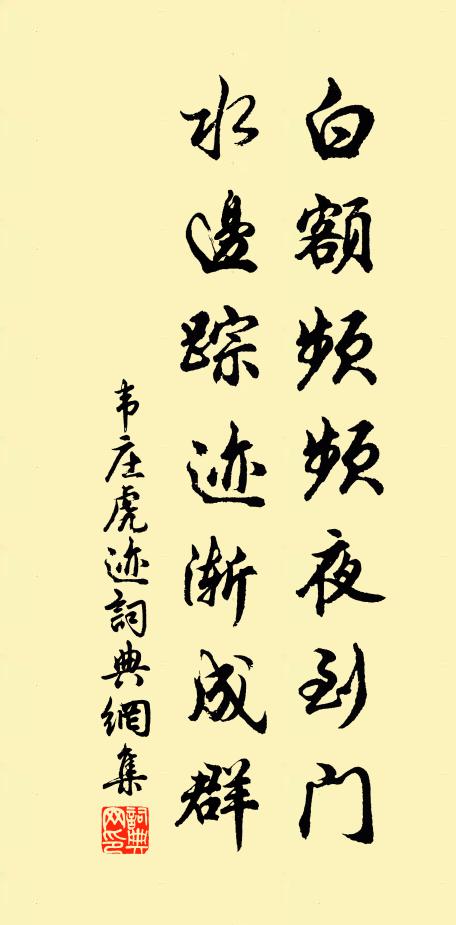 白额频频夜到门
水邊踪迹渐成群
韦庄虎迹詞典網集
詞典网印